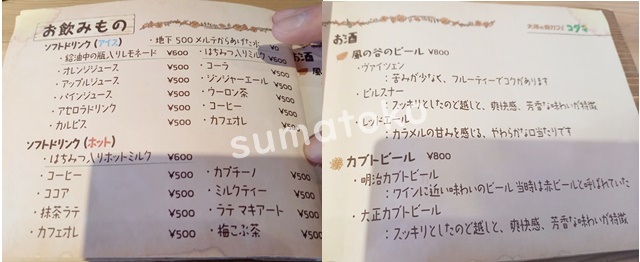 お飲みもの
ソフトドリンク(アイス)
・地下500メルテからあげた水 ¥0
・給油中の瓶入りレモネード ¥600
・はちみつ入りミルク ¥600
・オレンジジュース ¥500
・コーラ ¥500
・アップルジュース ¥500
・ジンジャーエール ¥500
・パインジュース ¥500
・ウーロン茶 ¥500
・アセロラドリンク ¥500
・コーヒー ¥500
・カルピス ¥500
・カフェオレ ¥500
ソフトドリンク(ホット)
・はちみつ入りホットミルク ¥600
・コーヒー ¥500
・カプチーノ ¥500
・ココア ¥500
・ミルクティー ¥500
・抹茶ラテ ¥500
・ラテ マキアート ¥500
・カフェオレ ¥500
・梅こぶ茶 ¥500
sumatoko
お酒
風の谷のビール ¥800
・ヴァイツェン
:苦みが少なく、フルーティーでコクがあります
・ピルスナー
:スッキリとしたのど越しと、爽快感、芳香な味わいが特徴
・レッドエール
:カラメルの甘みを感じる、やわらかな口当たりです
カブトビール ¥800
・明治カブトビール
:ワインに近い味わいのビール 当時は赤ビールと呼ばれていた
・大正カブトビール
:スッキリとしたのど越しと、爽快感、芳香な味わいが特徴